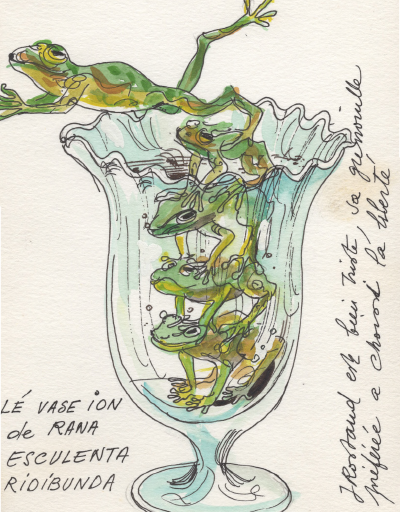 LÉ VASE ION
de RANA
ESCULENTA
RIDIBUNDA
J Rostand est bien triste, sa grenouille
préférée a choisi la liberté